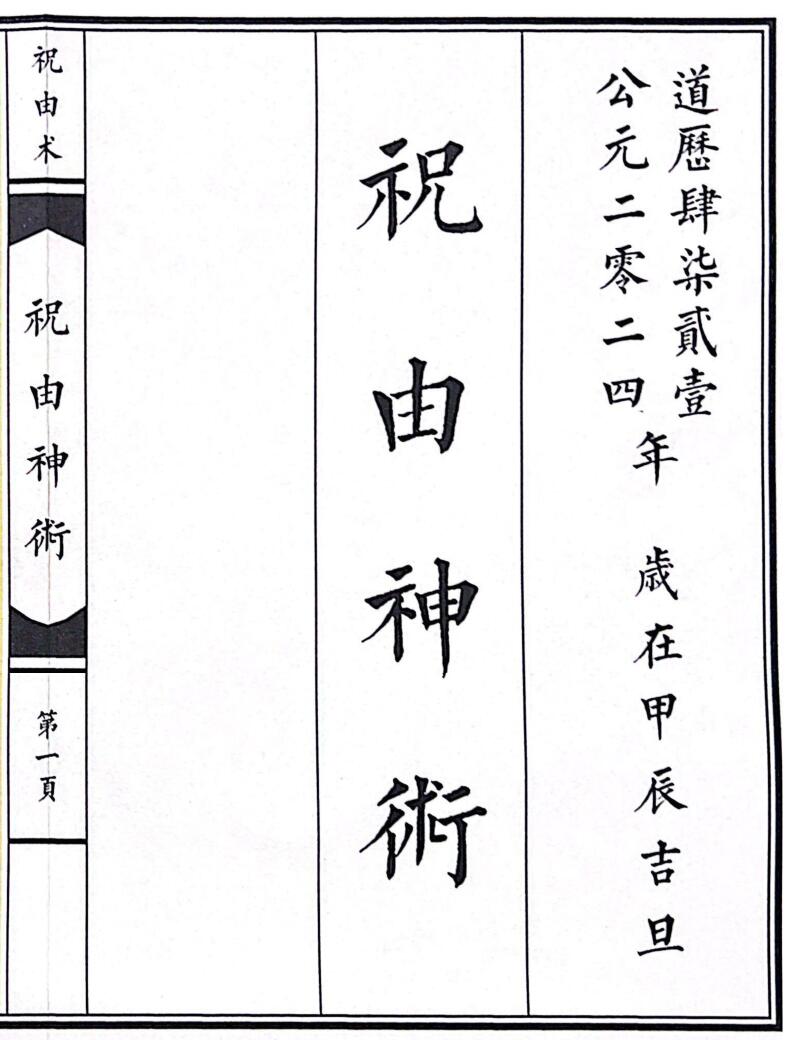 道曆肆柒貳壹
公元二零二四
年 歲在甲辰吉旦
祝由神術
祝由术
祝由神術
第一頁